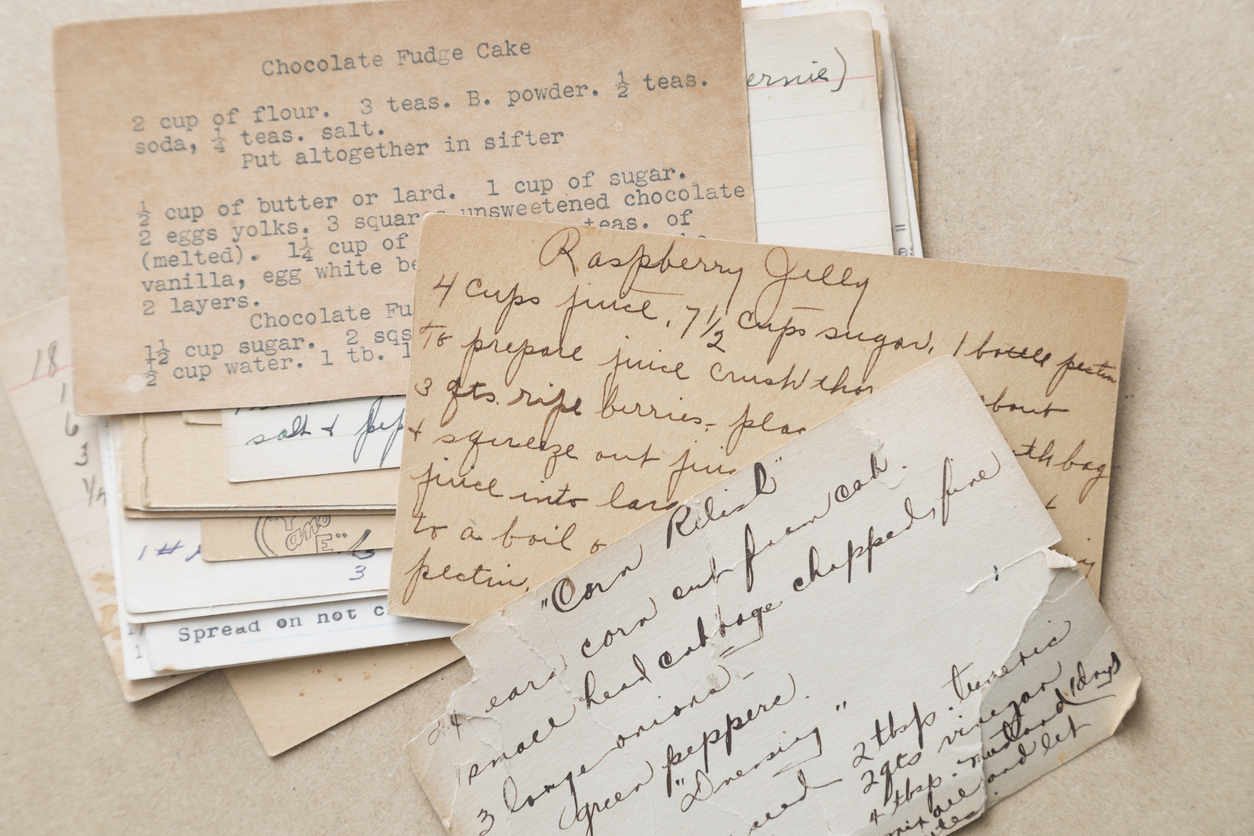 Chocolate Fudge Cake
2 cup of flour. 3 teas. B. powder. ½ teas.
soda, ¼ teas. salt.
Put altogether in sifter
½ cup of butter or lard. 1 cup of sugar.
2 eggs yolks. 3 squares unsweetened chocolate
(melted). 1¼ cup of teas. of
vanilla, egg white be
2 layers.
Chocolate Fu
1½ cup sugar. 2 sqs
½ cup water. 1 tb. 1
ernie)
18
1
6
3
¼
salt & pep
"Y
and
E"
1 #
3
3
Spread on not c
Raspberry Jelly
4 cups juice, 7½ cups sugar, 1 bottle pectin
To prepare juice crush thor about
3 qts. ripe berries, plac
& squeeze out juice th bag.
juice into larg
to a boil
pectin,
"Corn Relish"
24 ears corn cut from cob.
1 small head cabbage chopped, fine
3 large onions
green peppers.
"Dressing"
2 tbsp. tumeric
2 qts vinegar
4 tbsp. mustard
mix all and let